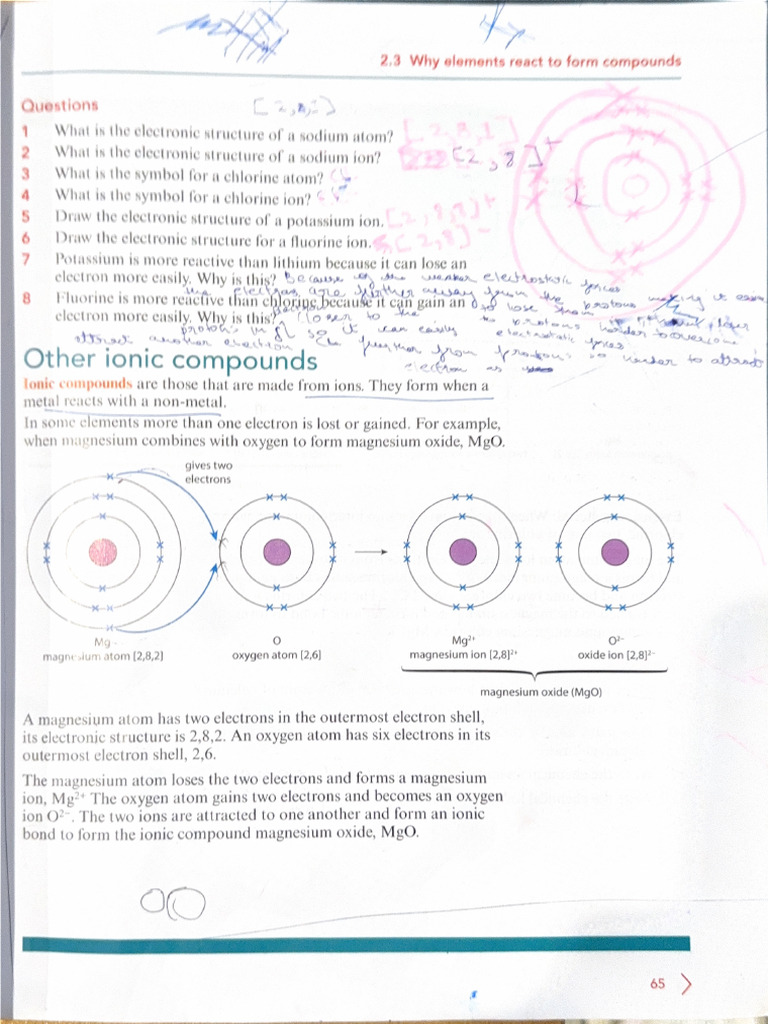 2.3 Why elements react to form compounds
Questions
1 What is the electronic structure of a sodium atom? [2,8,1]
2 What is the electronic structure of a sodium ion? [2,8]+
3 What is the symbol for a chlorine atom?
4 What is the symbol for a chlorine ion?
5 Draw the electronic structure of a potassium ion. [2,8,8]+
6 Draw the electronic structure for a fluorine ion. [2,8]-
7 Potassium is more reactive than lithium because it can lose an
electron more easily. Why is this? Because of the weaker electrostatic forces
the electrons are further away from the protons making it
8 Fluorine is more reactive than chlorine because it can gain an
electron more easily. Why is this? closer to the
protons in so it can easily electrostatic forces
attract another electron further from protons so harder to attract
electron
Other ionic compounds
Ionic compounds are those that are made from ions. They form when a
metal reacts with a non-metal.
In some elements more than one electron is lost or gained. For example,
when magnesium combines with oxygen to form magnesium oxide, MgO.
gives two
electrons
Mg O Mg²⁺ O²⁻
magnesium atom [2,8,2] oxygen atom [2,6] magnesium ion [2,8]²⁺ oxide ion [2,8]²⁻
magnesium oxide (MgO)
A magnesium atom has two electrons in the outermost electron shell,
its electronic structure is 2,8,2. An oxygen atom has six electrons in its
outermost electron shell, 2,6.
The magnesium atom loses the two electrons and forms a magnesium
ion, Mg²⁺ The oxygen atom gains two electrons and becomes an oxygen
ion O²⁻. The two ions are attracted to one another and form an ionic
bond to form the ionic compound magnesium oxide, MgO.
65